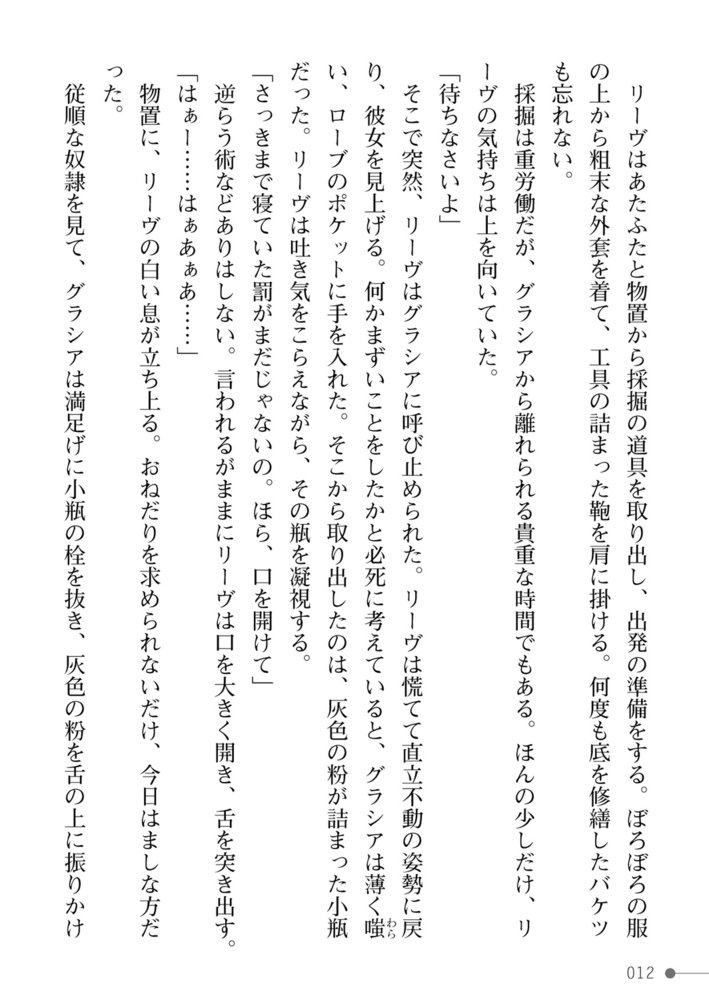 リーヴはあたふたと物置から採掘の道具を取り出し、出発の準備をする。ぼろぼろの服
の上から粗末な外套を着て、工具の詰まった鞄を肩に掛ける。何度も底を修繕したバケツ
も忘れない。
採掘は重労働だが、グラシアから離れられる貴重な時間でもある。ほんの少しだけ、リ
ーヴの気持ちは上を向いていた。
「待ちなさいよ」
そこで突然、リーヴはグラシアに呼び止められた。リーヴは慌てて直立不動の姿勢に戻
り、彼女を見上げる。何かまずいことをしたかと必死に考えていると、グラシアは薄く嗤わら
い、ローブのポケットに手を入れた。そこから取り出したのは、灰色の粉が詰まった小瓶
だった。リーヴは吐き気をこらえながら、その瓶を凝視する。
「さっきまで寝ていた罰がまだじゃないの。ほら、口を開けて」
逆らう術などありはしない。言われるがままにリーヴは口を大きく開き、舌を突き出す。
「はぁー……はぁあぁあ……」
物置に、リーヴの白い息が立ち上る。おねだりを求められないだけ、今日はましな方だ
った。
従順な奴隷を見て、グラシアは満足げに小瓶の栓を抜き、灰色の粉を舌の上に振りかけ
012